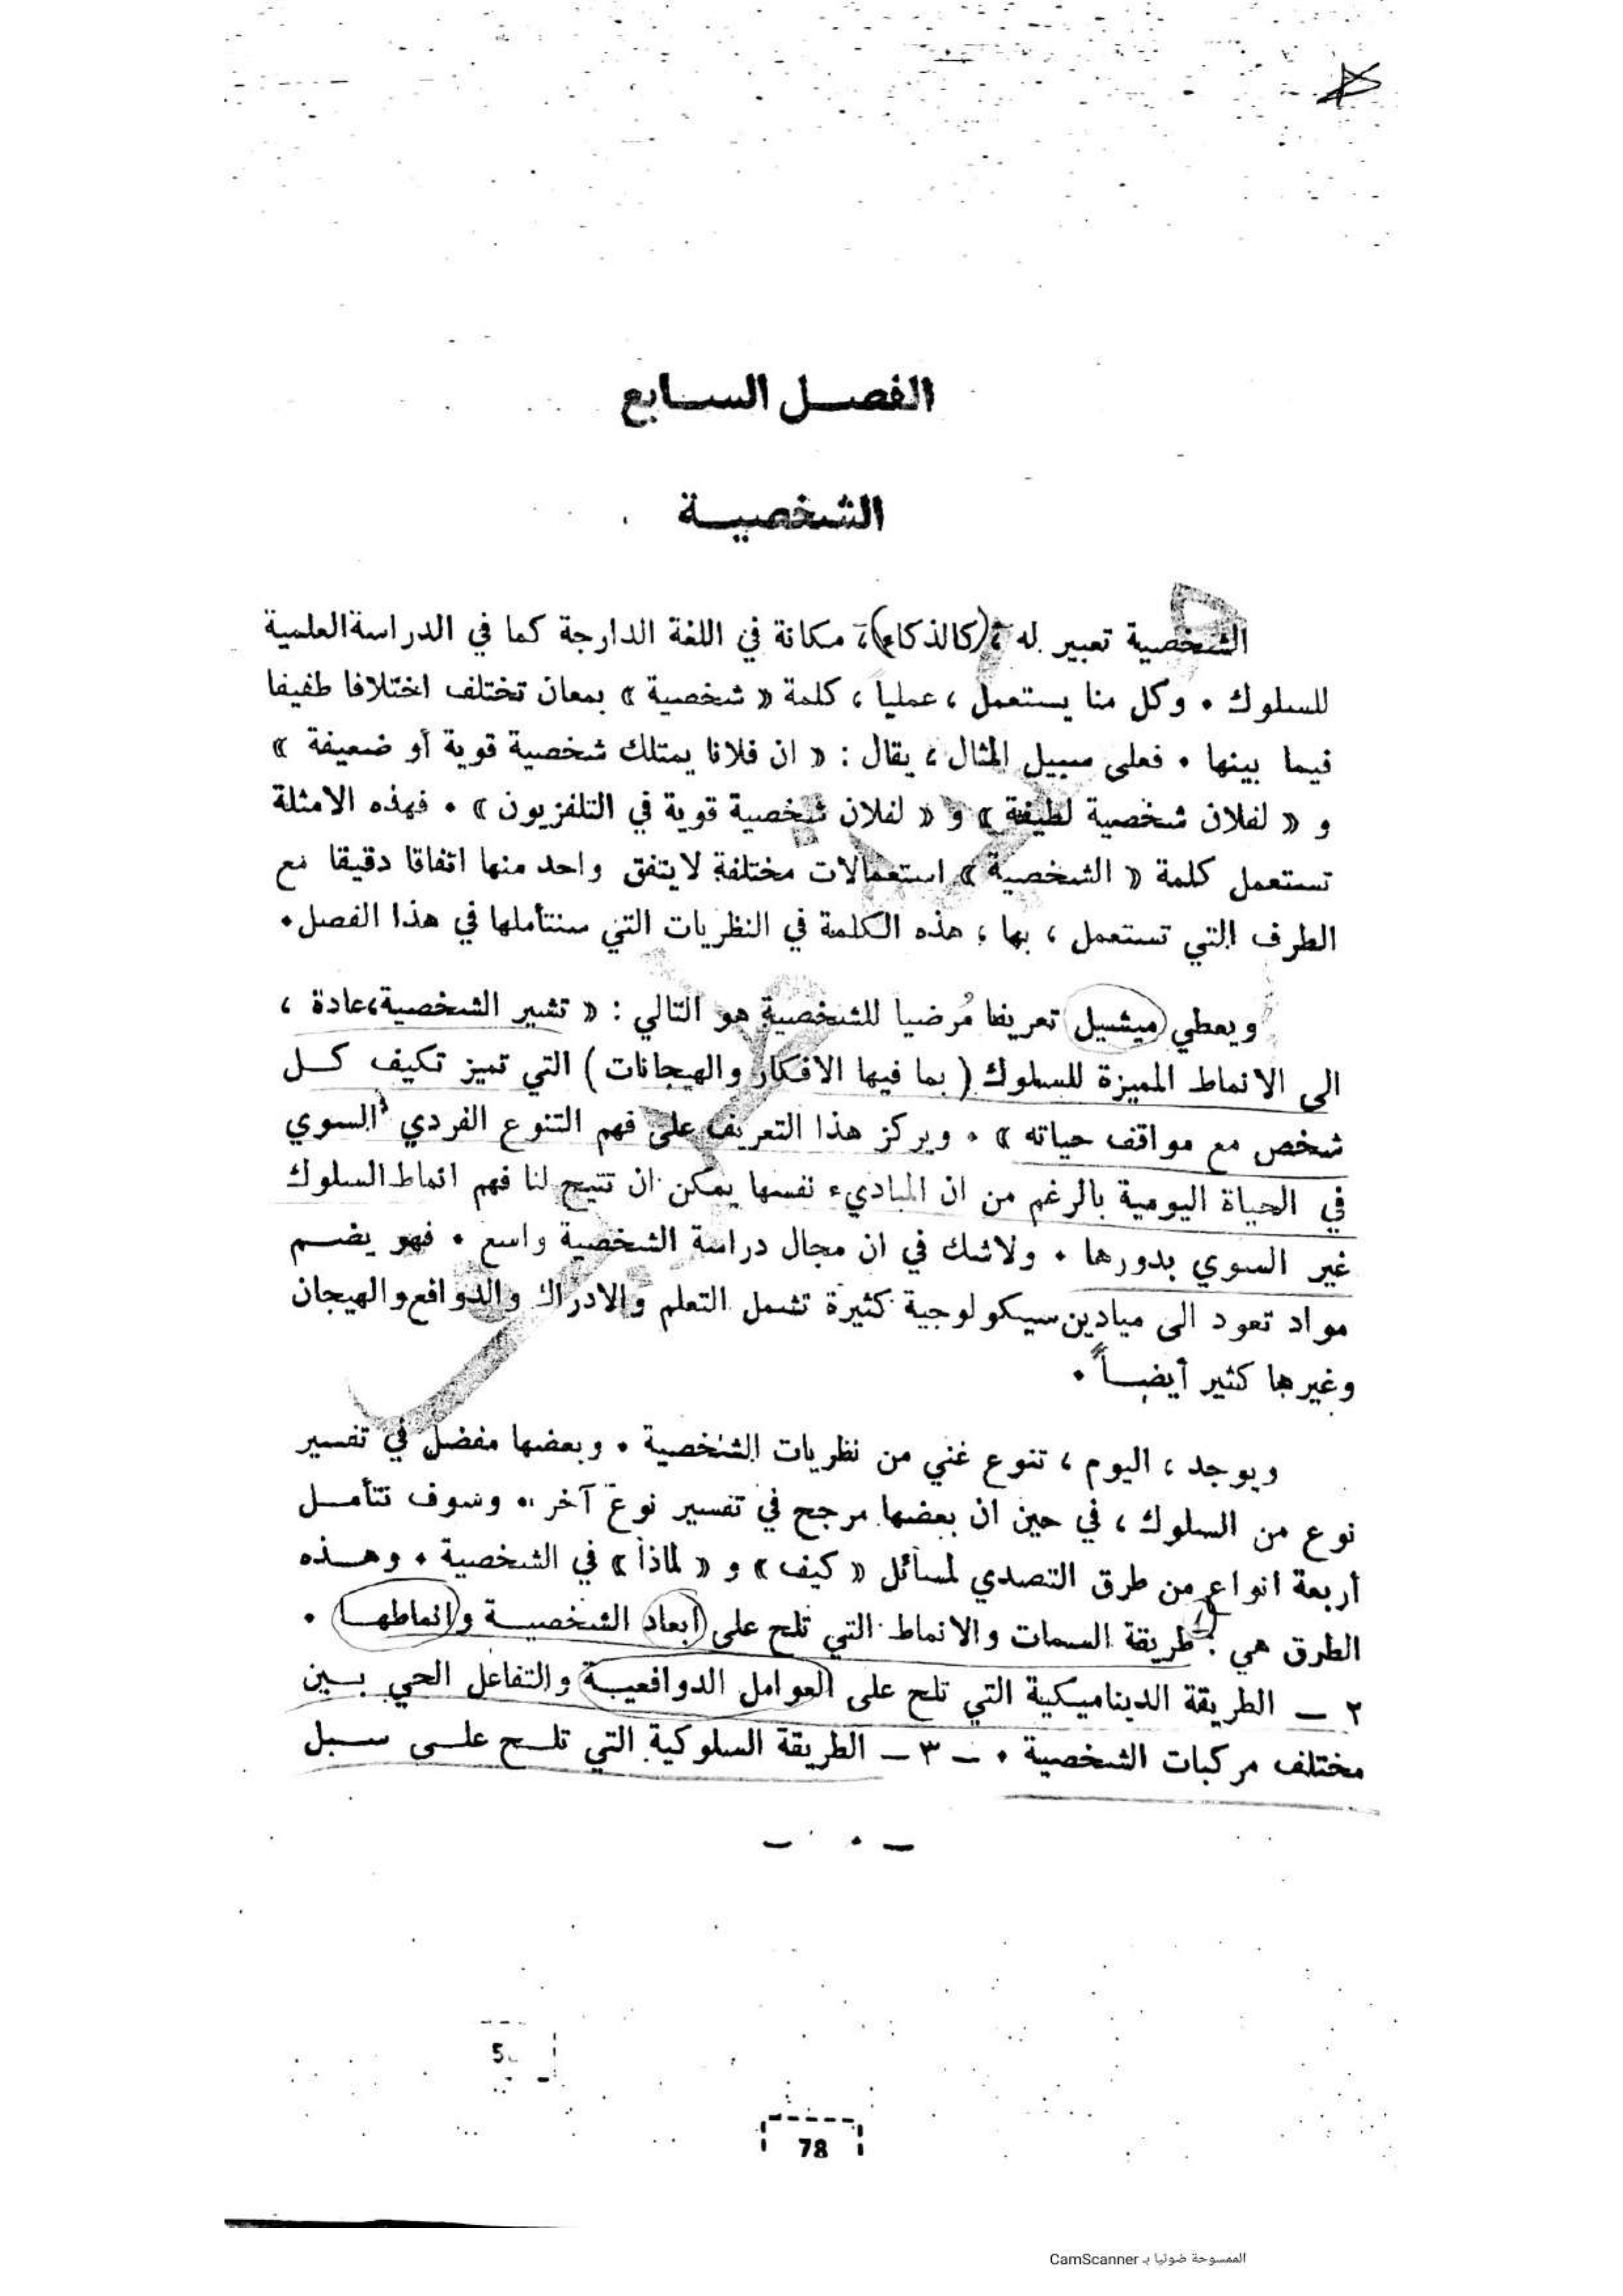 الفصل السابع
الشخصية
الشخصية تعبير له ، (كالذكاء) ، مكانة في اللغة الدارجة كما في الدراسة العلمية
للسلوك . وكل منا يستعمل ، عمليا ، كلمة « شخصية » بمعان تختلف اختلافا طفيفا
فيما بينها . فعلى سبيل المثال ، يقال : « ان فلانا يمتلك شخصية قوية أو ضعيفة »
و « لفلان شخصية لطيفة » و « لفلان شخصية قوية في التلفزيون » . فهذه الامثلة
تستعمل كلمة « الشخصية » استعمالات مختلفة لايتفق واحد منها اتفاقا دقيقا مع
الطرف التي تستعمل ، بها ، هذه الكلمة في النظريات التي سنتأملها في هذا الفصل .
ويعطي ميشيل تعريفا مُرضيا للشخصية هو التالي : « تشير الشخصية ، عادة ،
الى الانماط المميزة للسلوك ( بما فيها الافكار والهيجانات ) التي تميز تكيف كل
شخص مع مواقف حياته » . ويركز هذا التعريف على فهم التنوع الفردي السوي
في الحياة اليومية بالرغم من ان المباديء نفسها يمكن ان تتيح لنا فهم انماط السلوك
غير السوي بدورها . ولاشك في ان مجال دراسة الشخصية واسع . فهو يضم
مواد تعود الى ميادين سيكولوجية كثيرة تشمل التعلم والادراك والدوافع والهيجان
وغيرها كثير أيضاً .
ويوجد ، اليوم ، تنوع غني من نظريات الشخصية . وبعضها مفضل في تفسير
نوع من السلوك ، في حين ان بعضها مرجح في تفسير نوع آخر . وسوف نتأمل
أربعة انواع من طرق التصدي لمسائل « كيف » و « لماذا » في الشخصية . وهذه
الطرق هي : ١ طريقة السمات والانماط التي تلح على ابعاد الشخصية وانماطها .
٢ – الطريقة الديناميكية التي تلح على العوامل الدوافعية والتفاعل الحي بين
مختلف مركبات الشخصية . – ٣ – الطريقة السلوكية التي تلح على سبل
5
78
الممسوحة ضوئيا بـ CamScanner